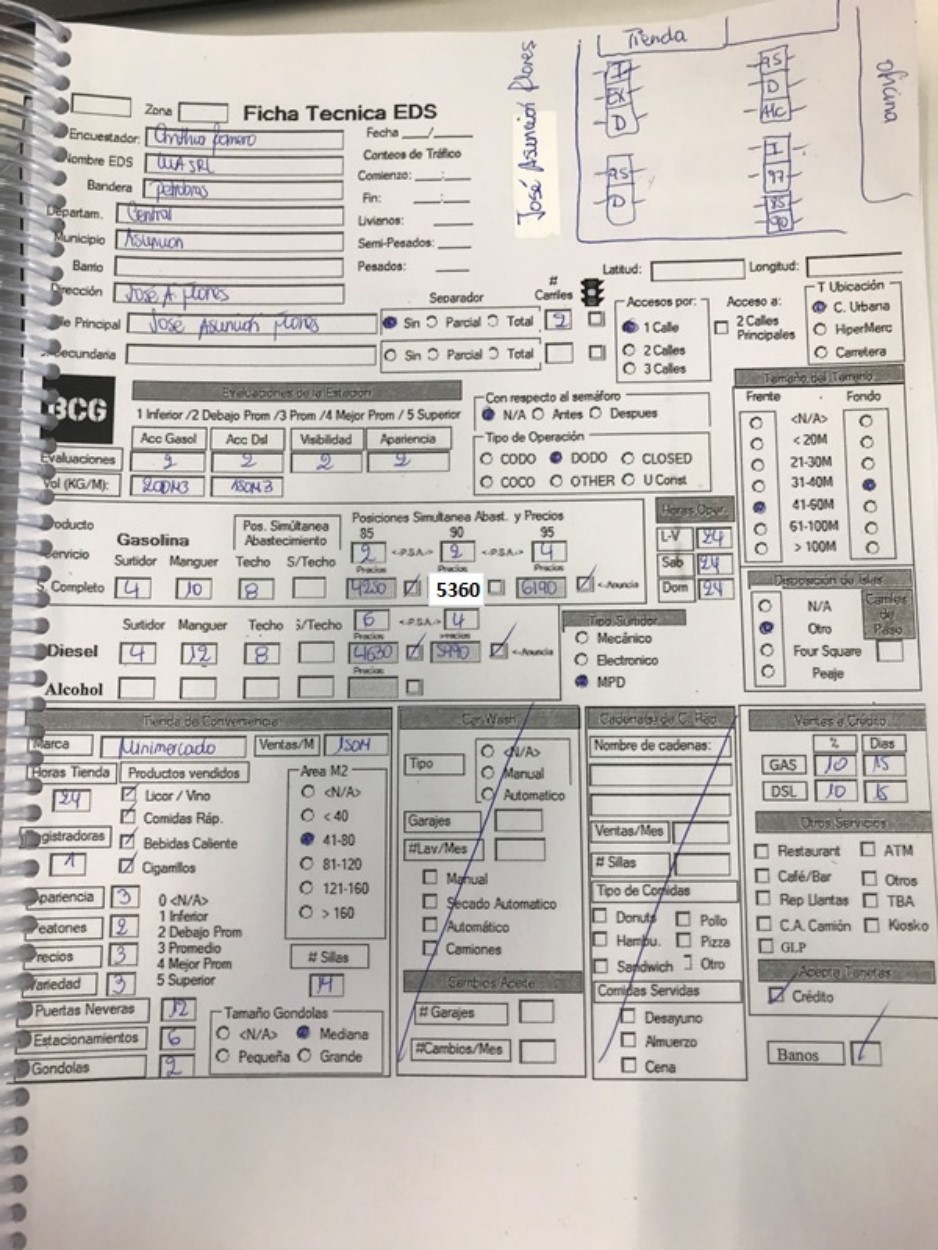 Tienda
I
EX
D
95
D
Alc
oficina
José Asunción Flores
I
97
85
90
D
Zona
Ficha Tecnica EDS
Encuestador:
Fecha ___/___
Nombre EDS
Conteos de Tráfico
Bandera Petrobras
Comienzo: ___:___
Departam. Central
Fin: ___:___
Municipio Asuncion
Livianos: ___
Semi-Pesados: ___
Barrio
Pesados: ___
Latitud: Longitud:
Dirección José A Flores
Separador # Carriles
Principal José Asunción Flores Sin Parcial Total 2
Secundaria Sin Parcial Total
Accesos por:
1 Calle
2 Calles
3 Calles
Acceso a:
2 Calles Principales
T Ubicación
C. Urbana
HiperMerc
Carretera
BCG
Evaluaciones de la Estación
1 Inferior /2 Debajo Prom /3 Prom /4 Mejor Prom / 5 Superior
Acc Gasol Acc Dsl Visibilidad Apariencia
Evaluaciones 2 2 2 2
Vol (KG/M): 200M3 150M3
Con respecto al semáforo
N/A Antes Despues
Tipo de Operación
CODO DODO CLOSED
COCO OTHER U Const
Tamaño del Terreno
Frente Fondo
<N/A>
< 20M
21-30M
31-40M
41-60M
61-100M
> 100M
Producto
Servicio
Gasolina
Pos. Simúltanea Abastecimiento
Posiciones Simultanea Abast. y Precios
85 90 95
Surtidor Manguer Techo S/Techo 2 <-P.S.A.-> 2 <-P.S.A.-> 4
Precios Precios Precios
S. Completo 4 10 8 4250 5360 6190 <-Anuncia
Horas Oper.
L-V 24
Sab 24
Dom 24
Surtidor Manguer Techo S/Techo 6 <-P.S.A.-> 4
Precios Precios
Diesel 4 12 8 4630 5990 <-Anuncia
Precios
Alcohol
Tipo Surtidor
Mecánico
Electronico
MPD
Disposición de Islas
N/A
Otro
Four Square
Peaje
Carriles de Paso
Tienda de Conveniencia
Marca Minimercado Ventas/M 150M
Horas Tienda 24
Productos vendidos
Licor / Vino
Comidas Ráp.
Bebidas Caliente
Cigarrillos
Registradoras 1
Area M2
<N/A>
< 40
41-80
81-120
121-160
> 160
Apariencia 3
Peatones 2
Precios 3
Variedad 3
0 <N/A>
1 Inferior
2 Debajo Prom
3 Promedio
4 Mejor Prom
5 Superior
# Sillas
14
Puertas Neveras 12
Estacionamientos 6
Gondolas 2
Tamaño Gondolas
<N/A> Mediana
Pequeña Grande
Car Wash
Tipo
<N/A>
Manual
Automatico
Garajes
#Lav/Mes
Manual
Secado Automatico
Automático
Camiones
Cambios Aceite
# Garajes
#Cambios/Mes
Cadena(s) de C. Rap
Nombre de cadenas:
Ventas/Mes
# Sillas
Tipo de Comidas
Donuts Pollo
Hambu. Pizza
Sandwich Otro
Comidas Servidas
Desayuno
Almuerzo
Cena
Ventas a Crédito
% Dias
GAS 10 15
DSL 10 15
Otros Servicios
Restaurant ATM
Café/Bar Otros
Rep Llantas TBA
C.A. Camión Kiosko
GLP
Acepta Tarjetas
Crédito
Banos